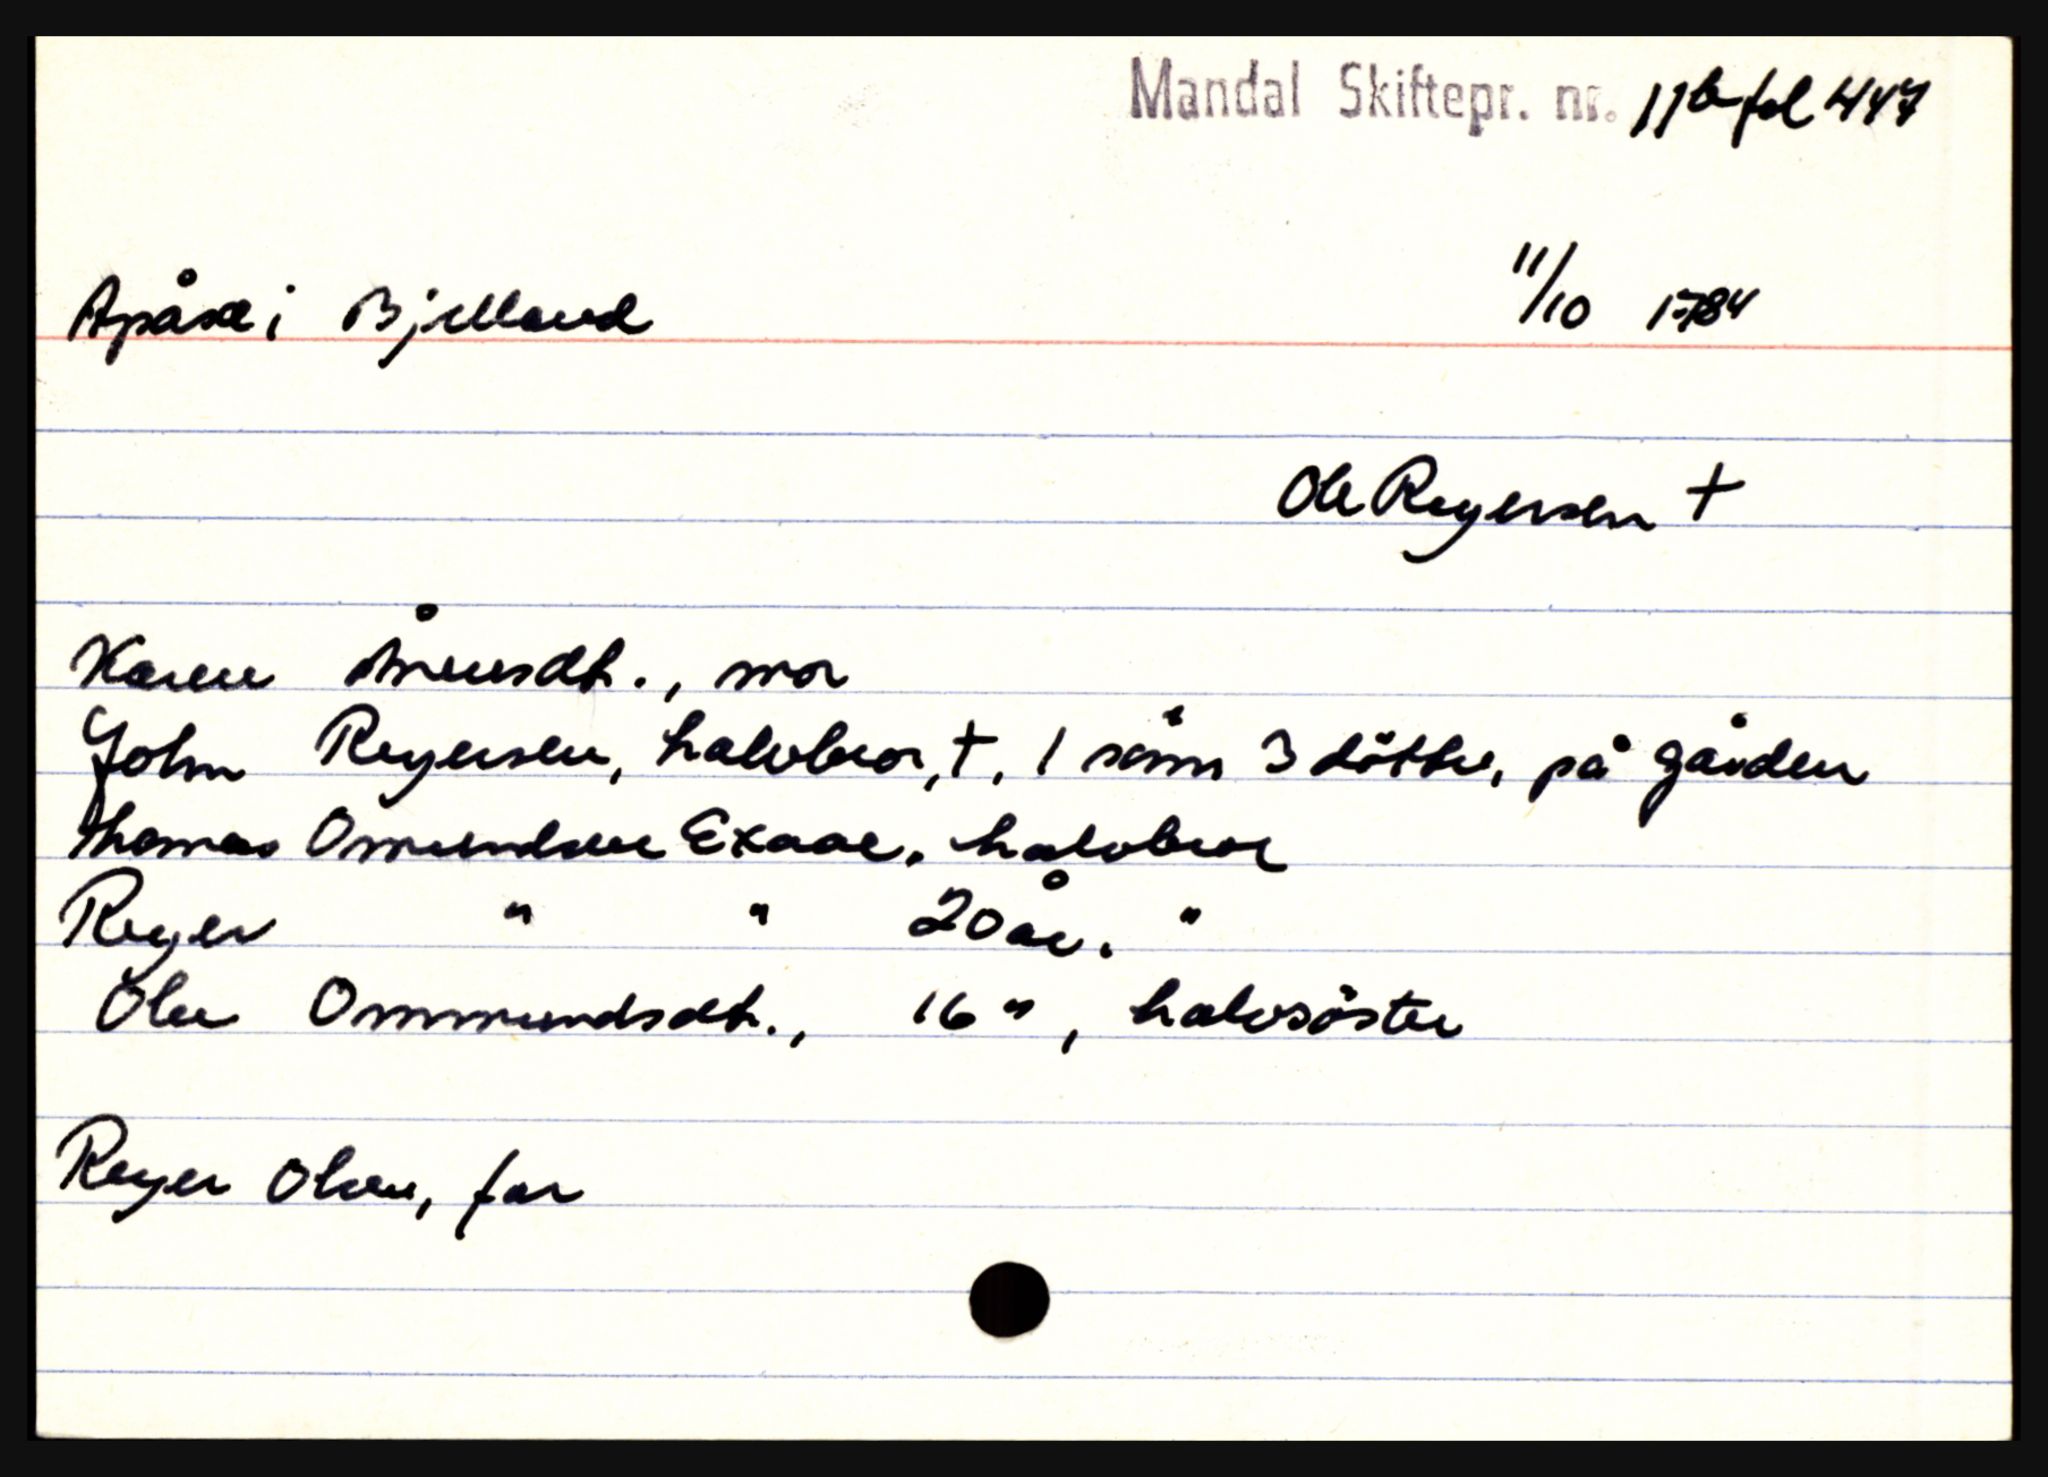 Mandal Skiftepr. nr. 11b fol 447
i Bjelland 11/10 1784
Ole Reyersen †
Karen Ånensdt., mor
John Reyersen, halvbror, †, 1 sönn 3 döttre, på gården
Thomas Omundsen Exaae, halvbror
Reyer " " 20 år. "
Olen Ommundsdt., 16 ", halvsöster
Reyer Olsen, far